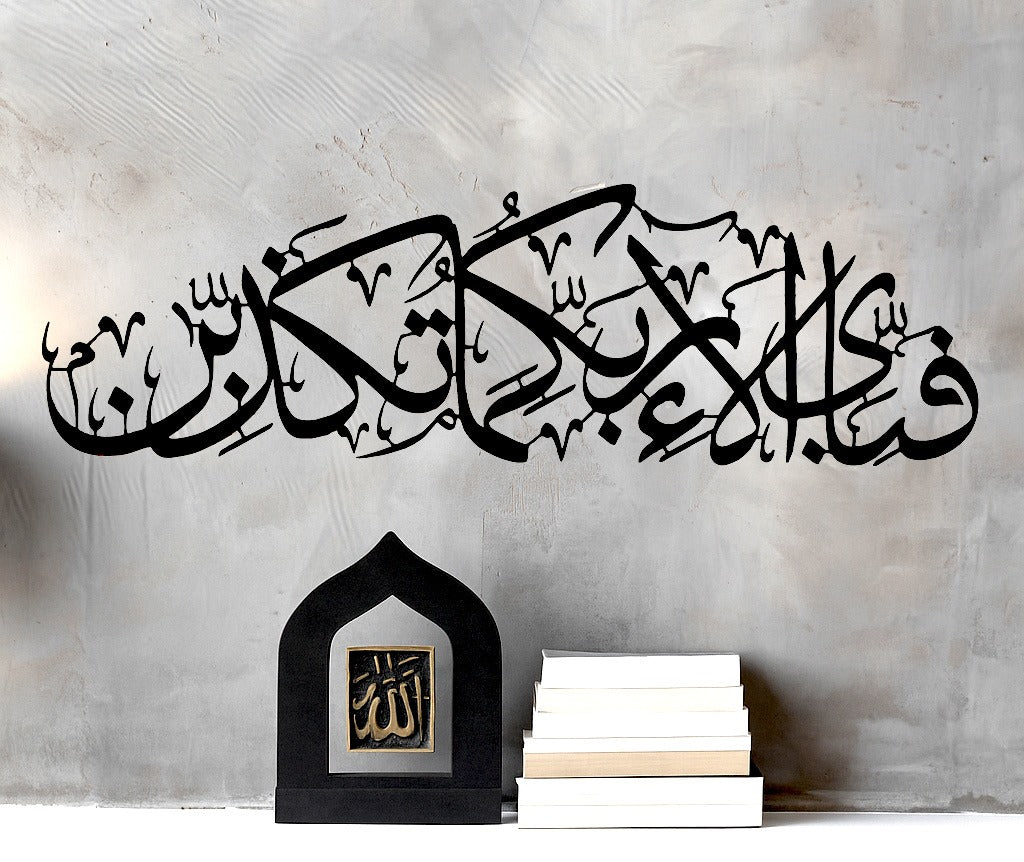 فَبِأَىِّ اٰلَآءِ رَبِّكُمَا تُكَذِّبٰنِ
الله